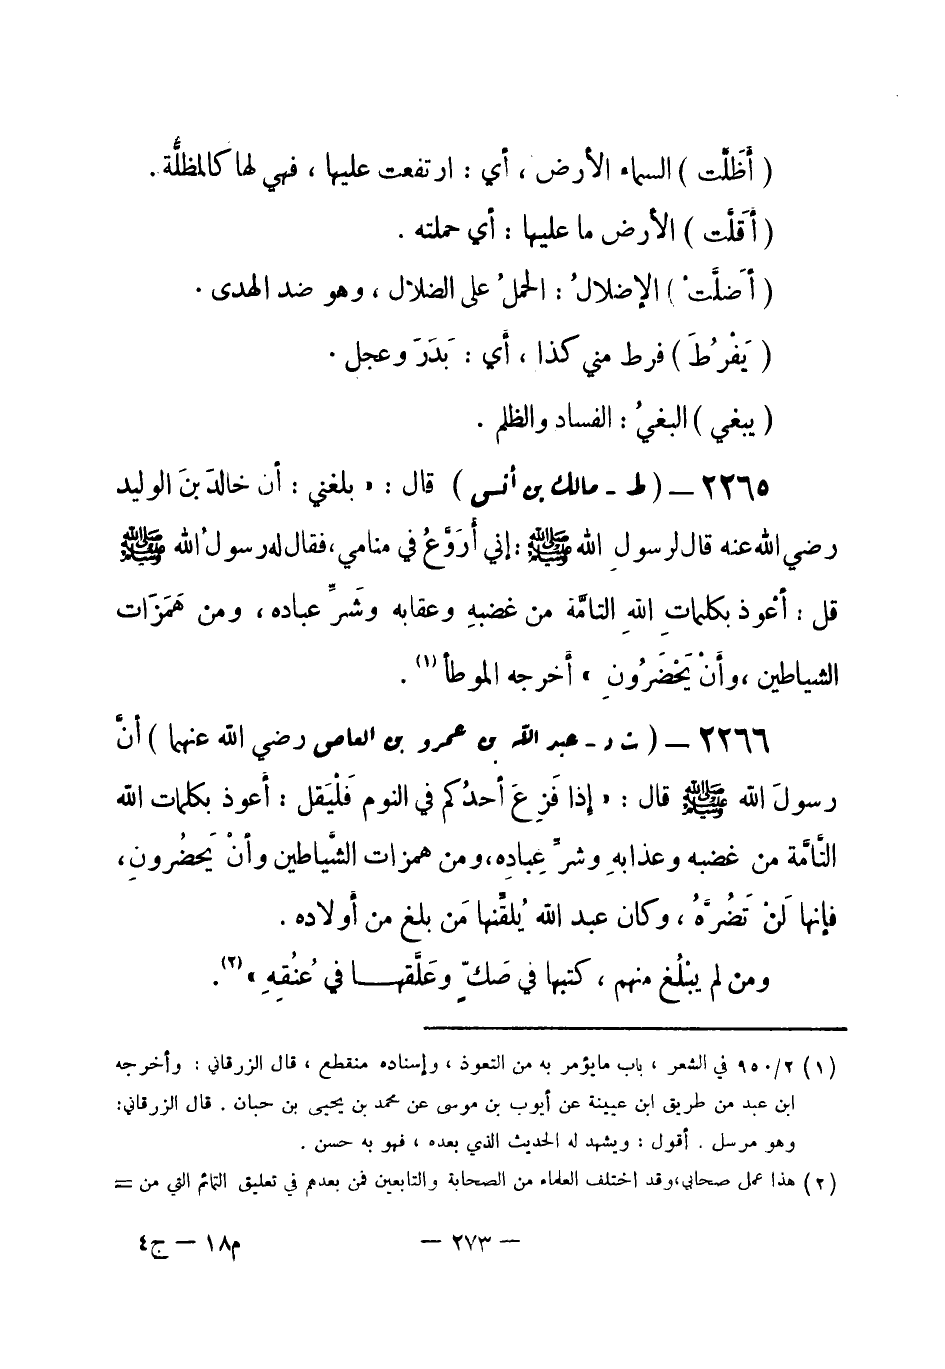 ( أَظَلَّت ) السماء الأرض ، أي : ارتفعت عليها ، فهي لها كالمظلَّة .
( أَقَلَّت ) الأرض ما عليها : أي حملته .
( أَضلَّتْ ) الإضلالُ : الحملُ على الضلال ، وهو ضد الهدى .
( يَفْرُطَ ) فرط مني كذا ، أي : بَدَرَ وعجل .
( يبغي ) البغيُ : الفساد والظلم .
٢٢٦٥ – ( ط - مالك بن أنس ) قال : « بلغني : أن خالدَ بنَ الوليد
رضي الله عنه قال لرسولِ الله ﷺ : إني أُرَوَّعُ في منامي ، فقال له رسولُ الله ﷺ
قل : أعوذ بكلماتِ اللهِ التامَّة من غضبهِ وعقابه وشَرِّ عباده ، ومن هَمَزَات
الشياطين ، وأنْ يَحْضَرُونِ » أخرجه الموطأ (١) .
٢٢٦٦ – ( ت د - عبد الله بن عمرو بن العاص رضي الله عنهما ) أنَّ
رسولَ الله ﷺ قال : « إذا فَزِعَ أحدُكم في النوم فَلْيَقل : أعوذ بكلمات الله
التَّامَّة من غضبه وعذابهِ وشرِّ عِبادِه ، ومن همزات الشَّياطين وأنْ يَحضُرونِ ،
فإنها لَنْ تَضُرَّهُ ، وكان عبد الله يُلقِّنها مَن بلغ من أولاده .
ومن لم يبْلُغ منهم ، كتبها في صَكٍّ وعَلَّقهـا في عُنُقِهِ » (٢) .
(١) ٩٥٠/٢ في الشعر ، باب مايؤمر به من التعوذ ، وإسناده منقطع ، قال الزرقاني : وأخرجه
ابن عبد من طريق ابن عيينة عن أيوب بن موسى عن محمد بن يحيى بن حبان . قال الزرقاني :
وهو مرسل . أقول : ويشهد له الحديث الذي بعده ، فهو به حسن .
(٢) هذا عمل صحابي ، وقد اختلف العلماء من الصحابة والتابعين فمن بعدهم في تعليق التمائم التي من =
م١٨ – ج٤ – ٢٧٣ –